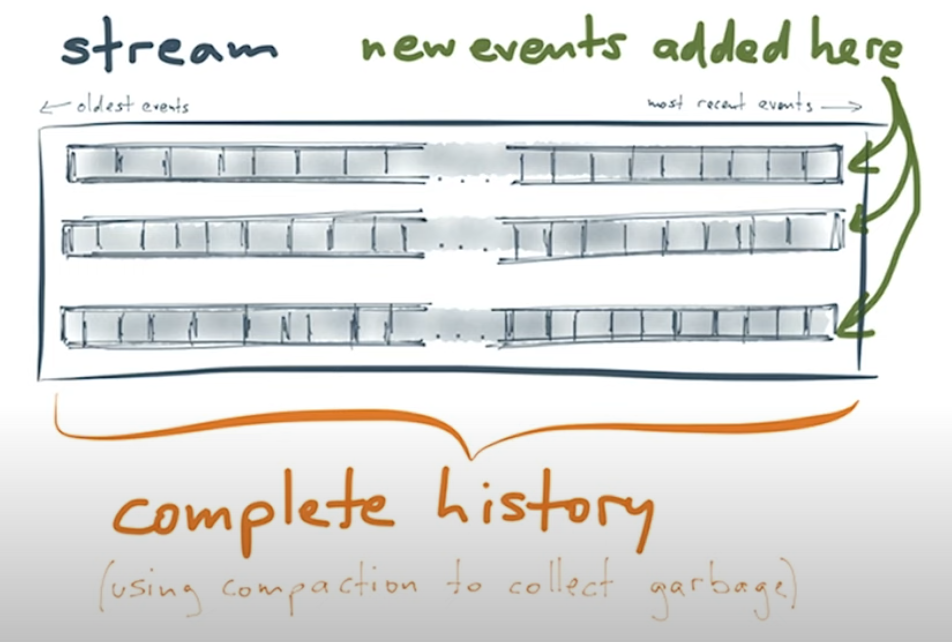 stream new events added here
← oldest events most recent events →
. . .
. . .
. . . .
complete history
(using compaction to collect garbage)